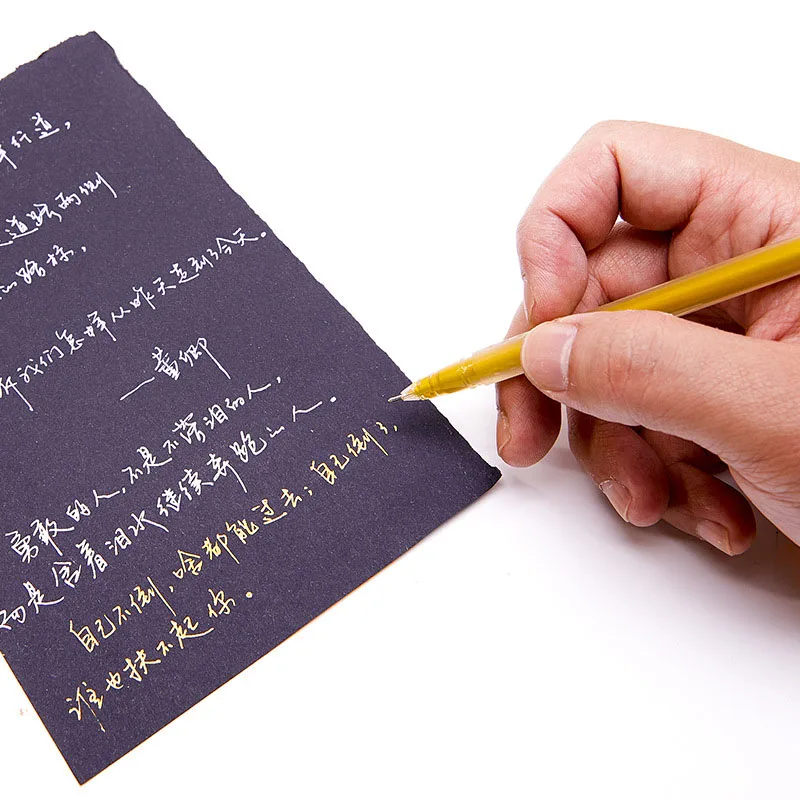 行道,
道路两侧
路标,
我们怎样从昨天走到了今天。
—董卿
勇敢的人,不是不落泪的人,
而是含着泪水继续奔跑的人。
自己不倒,啥都能过去;自己倒了,
谁也扶不起你。